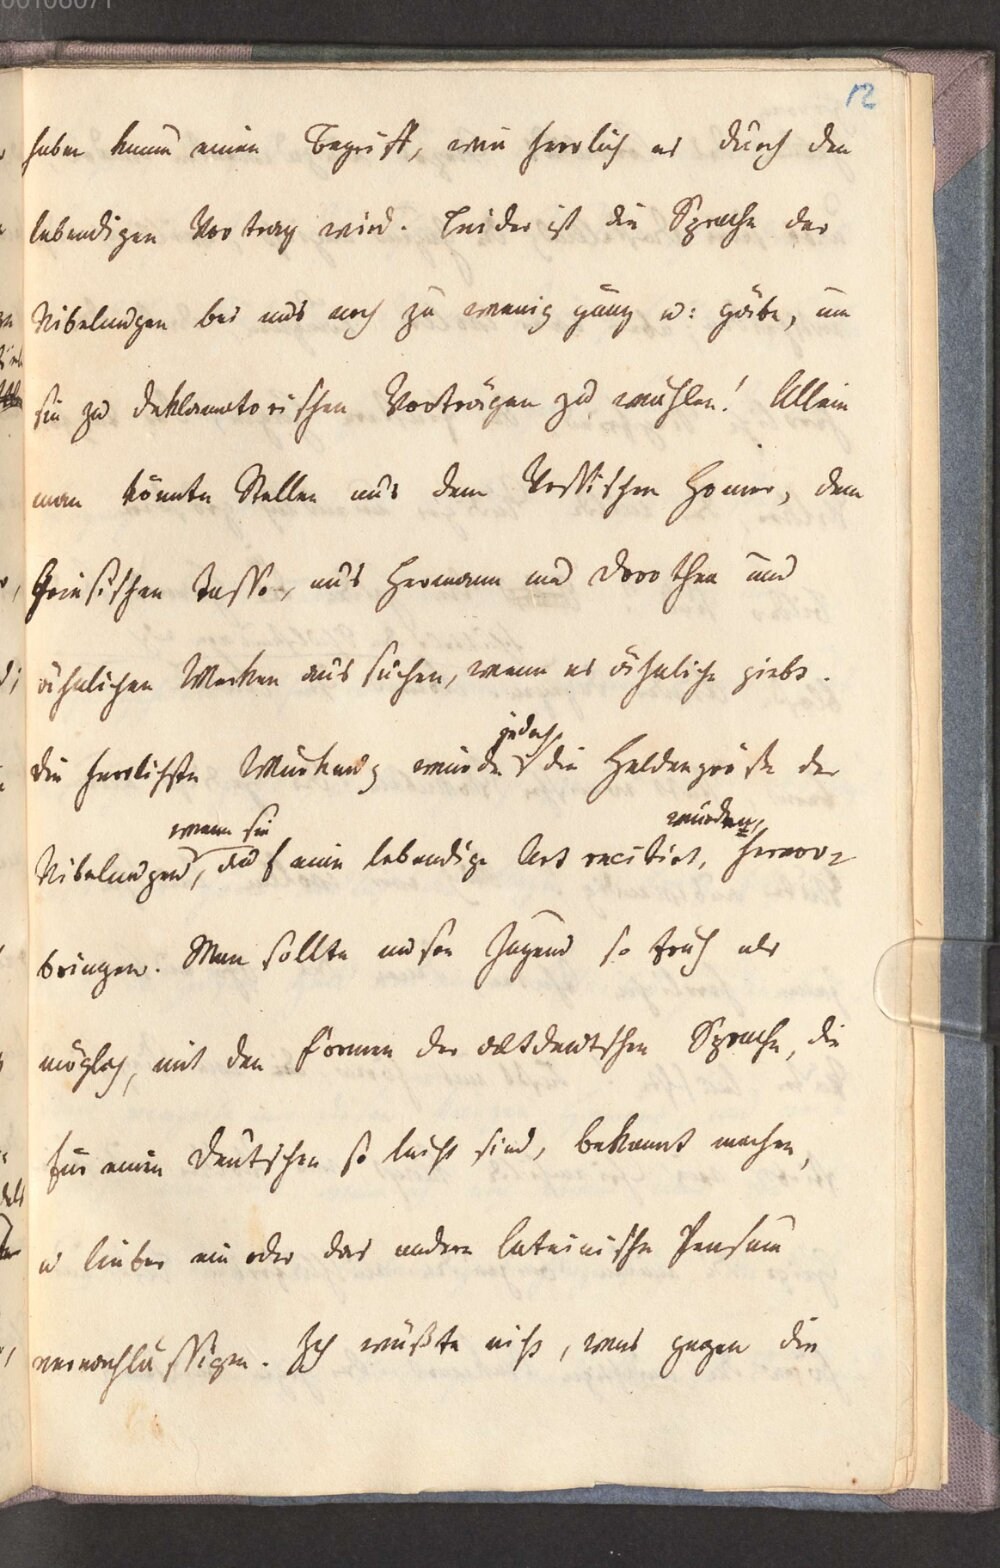 12
haben kaum einen Begriff, wie herrlich es durch den
lebendigen Vortrag wird. Leider ist die Sprache der
Nibelungen bei uns noch zu wenig gäng u: gäbe, um
sie zu deklamatorischen Vorträgen zu wählen! Allein
man könnte Stellen aus dem Vossischen Homer, dem
Griesischen Tasso, aus Hermann und Dorothea und
ähnlichen Werken aus suchen, wenn es ähnliche giebt.
die herrlichste Würkung würde jedoch die Heldengröße der
Nibelungen, wenn sie auf eine lebendige Art recitirt, würden, hervor-
bringen. Man sollte unsre Jugend so früh als
möglich, mit den Formen der altdeutschen Sprache, die
für einen Deutschen so leicht sind, bekannt machen,
u lieber ein oder das andere lateinische Pensum
vernachlässigen. Ich wüßte nicht, was gegen die